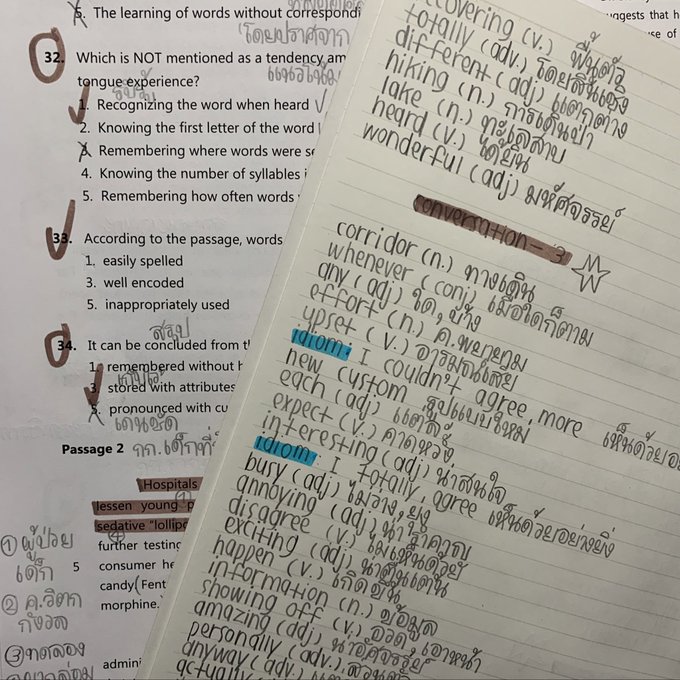 5. The learning of words without correspondi
โดยปราศจาก
32. Which is NOT mentioned as a tendency am
tongue experience?
1. Recognizing the word when heard
2. Knowing the first letter of the word
3. Remembering where words were se
4. Knowing the number of syllables i
5. Remembering how often words
33. According to the passage, words
1. easily spelled
3. well encoded
5. inappropriately used
สรุป
34. It can be concluded from th
1. remembered without h
3. stored with attributes
5. pronounced with cu
Passage 2
Hospitals
lessen young p
sedative "lollipo
further testing
5 consumer he
candy (Fent
morphine.
admini
① ผู้ป่วย
เด็ก
② ค.วิตก
กังวล
③ ทดลอง
uggests that h
se of
covering (v.) ฟื้นตัว
totally (adv.) โดยสิ้นเชิง
different (adj) แตกต่าง
hiking (n.) การเดินป่า
lake (n.) ทะเลสาบ
heard (v.) ได้ยิน
wonderful (adj) มหัศจรรย์
conversation - 3
corridor (n.) ทางเดิน
whenever (conj) เมื่อใดก็ตาม
any (adj) ใด, บ้าง
effort (n.) ค.พยายาม
upset (v.) อารมณ์เสีย
idiom: I couldn't agree more เห็นด้วยอ
new custom รูปแบบใหม่
each (adj) แต่ละ
expect (v.) คาดหวัง
interesting (adj) น่าสนใจ
idiom: I totally agree เห็นด้วยอย่างยิ่ง
busy (adj) ไม่ว่าง, ยุ่ง
annoying (adj) น่ารำคาญ
disagree (v.) ไม่เห็นด้วย
exciting (adj) น่าตื่นเต้น
happen (v.) เกิดขึ้น
information (n.) ข้อมูล
showing off (v.) อวด, เอาหน้า
amazing (adj) น่าอัศจรรย์
personally (adv.) ส่วนตัว
anyway (adv.)
actually